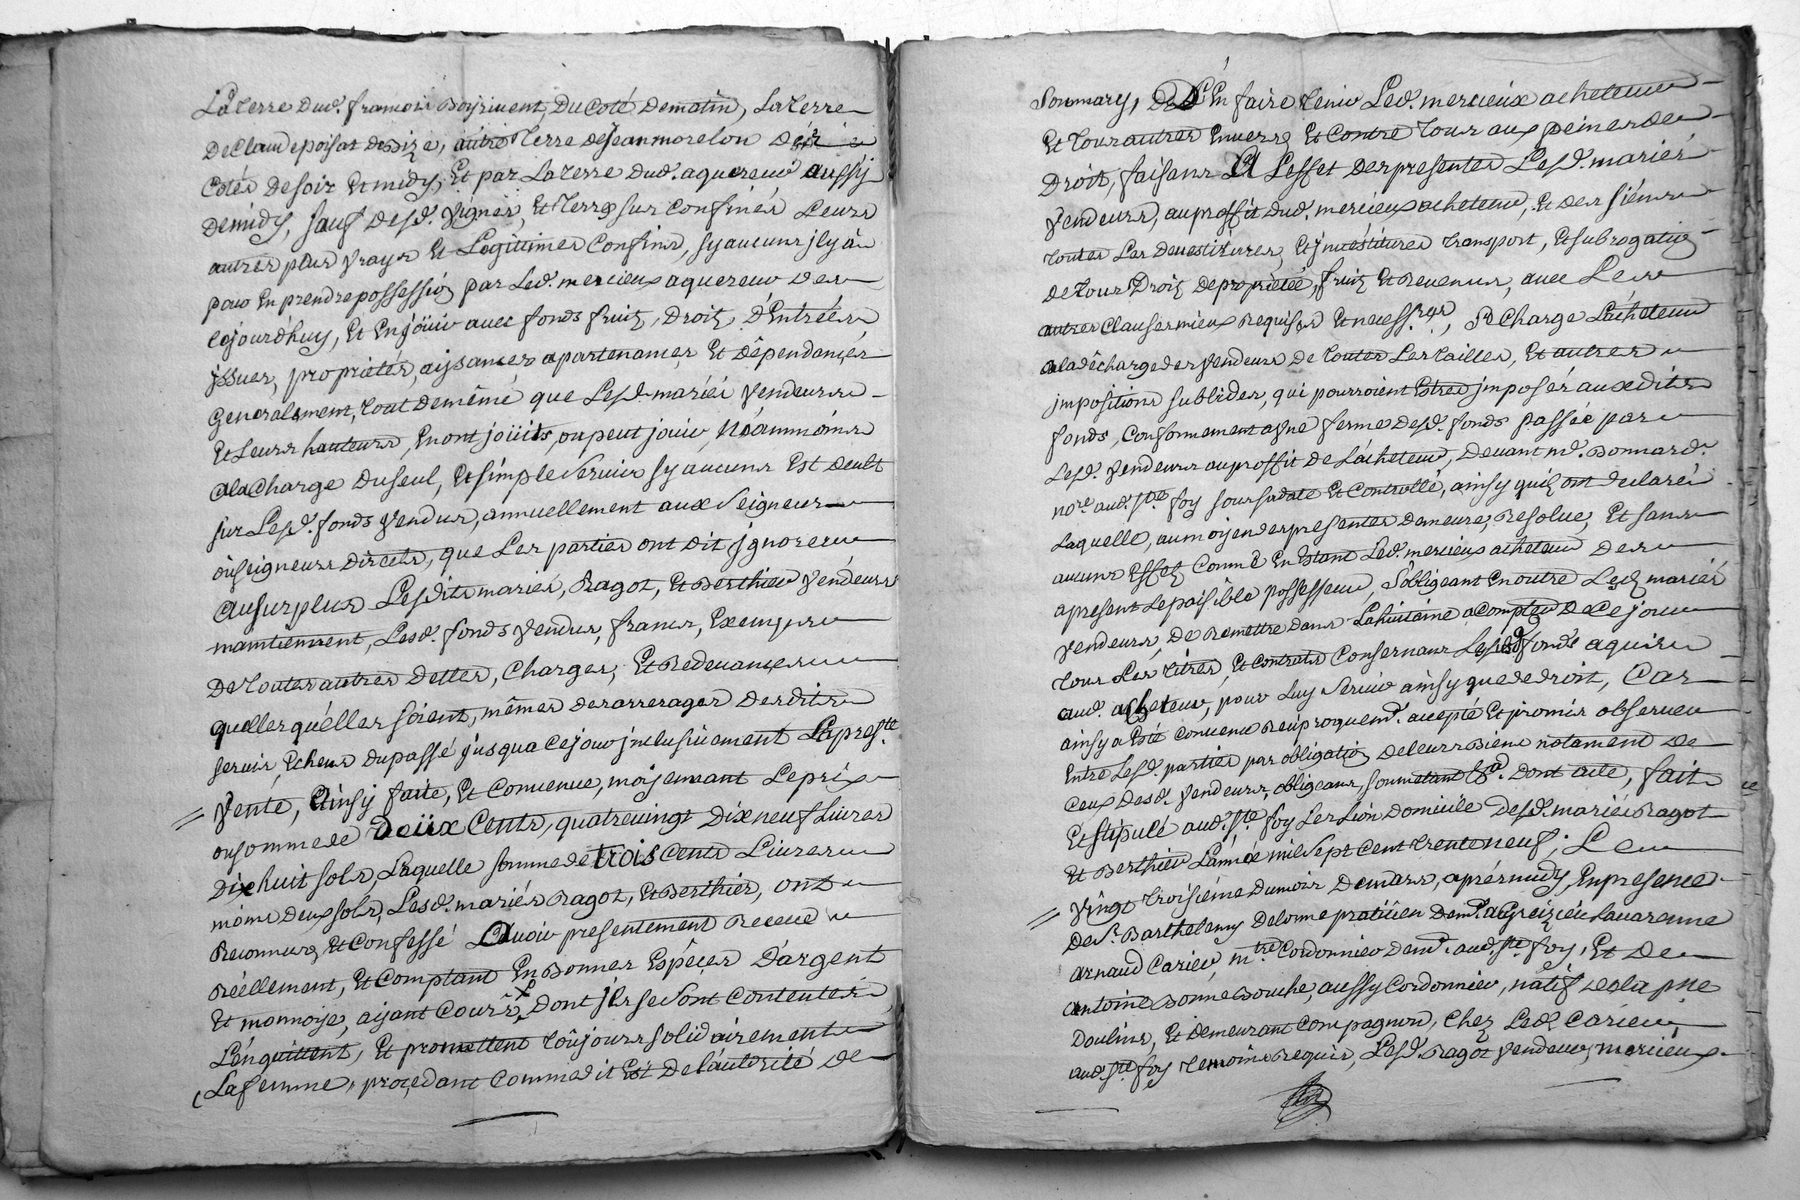 La terre dud. francois Boyrivent, du coté dematin, La terre
de Claude poisat de Size, autre terre de jean morelon des
cotés desoir et midy, et par La terre dud. aquereur aussy
demidy, sauf desd. vignes, et terres sur confinés Leurs
autres plus vrays et Legitimes confins, sy aucuns jl y à
pour En prendre possession par Led. mercieux aquereur des
cejourd'huy, et En joüir avec fonds fruits, droits, d'Entrées
jssues, proprietés, aysances apartenances et dépendances
generalement, tout demême que Lesd. mariés vendeurs
et Leurs hauteurs, En ont joüits, ou peut jouir, Néammoins
ala charge duseul, et simple servis sy aucuns Est deubt
sur Lesd. fonds vendus, annuellement aux seigneurs
ou seigneurs directs, que Les parties ont dit jgnorer
au surplus Lesdits mariés, Ragot, et Berthier vendeurs
maintiennent, Lesd. fonds vendus, francs, Exempts
de toutes autres dettes, charges, et Redevances
quelles qu'elles soient, mêmes des arrerages desdits
servis, Echeus dupassé jusqua cejour jnclusivement La pres.te
vente, ainsy faite, et convenue, moyennant Leprix
ou somme de deüx cents, quatrevingt dix neuf Livres
dix huit sols, Laquelle somme de trois cents Livres
moins deux sols, Lesd. mariés Ragot, et Berthier, ont
Reconnus, et Confessé avoir presentement Receue
Réellement, et Comptant En Bonnes Espéces d'argent
et monnoye, ayant Cours, dont jls se sont contentés
L'en quittent, et promettent toûjours solidairement
La femme, procedant comme dit Est de L'autorité de
sommary, de L'En faire tenir Led. mercieux acheteur
et tous autres Envers et contre tous aux peines de
droit, faisans a L'effet des presentes Lesd. mariés
vendeurs, au proffit dud. mercieux acheteur, et des siens
toutes Les devestitures, et jnvéstitures transport, et subrogation
de tous droits de proprieté, fruits et Revenus, avec Les
autres clauses mieux Requises et necess.res, Se charge L'acheteur
ala décharge des vendeurs de toutes Les tailles, et autres
jmpositions subsides, qui pourroient Estres jmposés auxdits
fonds, conformement a une ferme desd. fonds passée par
Lesd. vendeurs au proffit de L'acheteur, devant m.e Bonnard
no.re aud. S.te foy sous sa date et Controllé, ainsy quils ont declaré
Laquelle, au moyen des presentes demeure, Resolue, et sans
aucuns Effets comme En Estant Led. mercieux acheteur des
apresent Le paisible possesseur, s'obligeant En outre Lesd. mariés
vendeurs, de Remettre dans La huitaine a compter de ce jour
tous Les titres, et contrats Consernans Lesd. fonds aquis
aud. acheteur, pour Luy servir ainsy que de droit, Car
ainsy a Esté convenu Reciproquem.t accepté et promis observer
Entre Lesd. parties par obligation de leurs Biens notament de
ceux desd. vendeurs, obligeans, soumetant &.a dont acte, fait
et stipulé aud. S.te foy Les Lion domicile desd. mariés Ragot
et Berthier L'année mil sept cent trente neuf, Le
vingt troisiéme dumois de mars, aprés midy, En presence
de S.r Barthelemy Delorme praticien dem.t a Greizieu Lavarenne
arnaud Carier, m.tre cordonnier dem.t aud. S.te foy, et de
antoine Bonnebouche, aussy Cordonnier, natif de la p.ne
Doulins, et demeurant compagnon, chez Led. Carier,
aud. S.te foy temoins Requis, Lesd. Ragot vendeur, mercieux